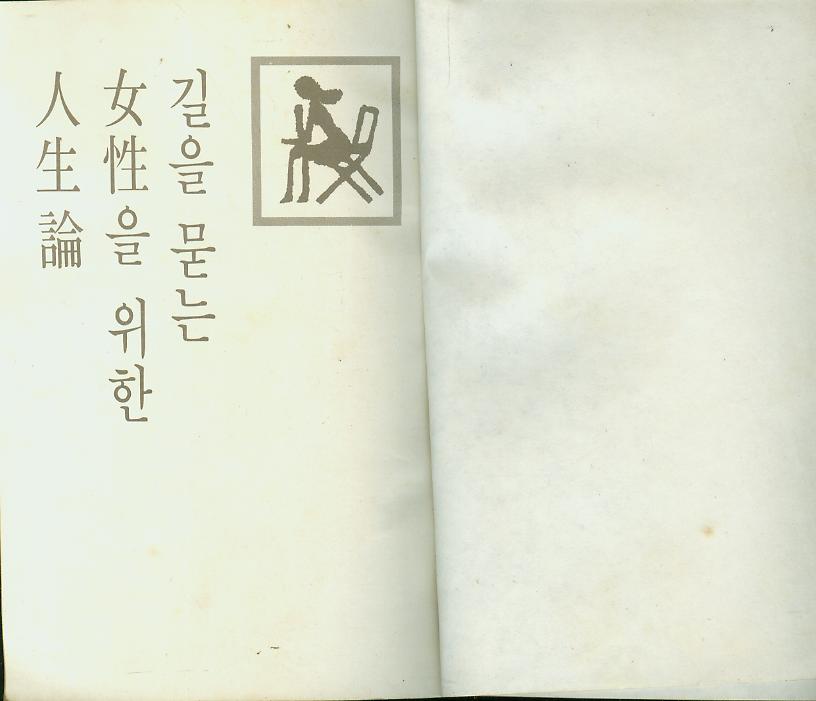 길을 묻는
女性을 위한
人生論